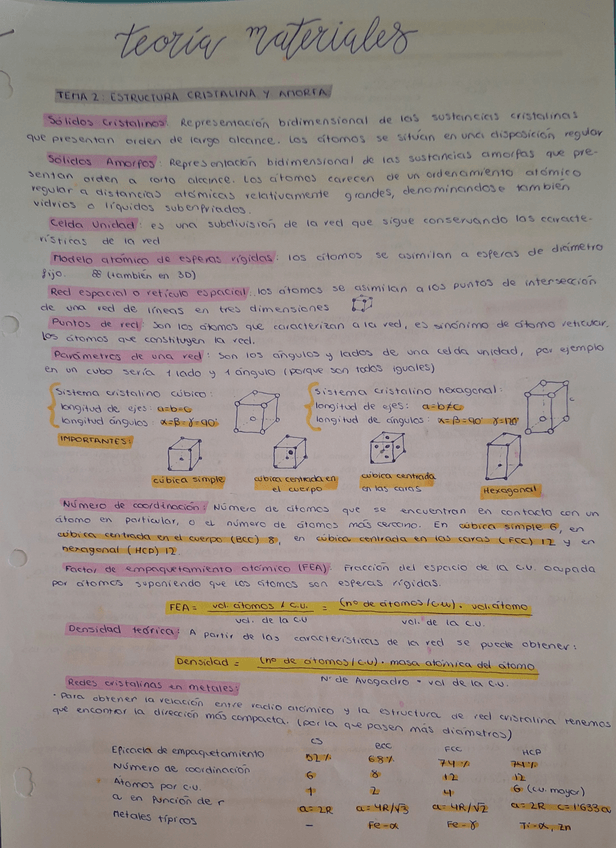 teoría materiales
TEMA 2: ESTRUCTURA CRISTALINA Y AMORFA
Sólidos Cristalinos: Representación bidimensional de las sustancias cristalinas
que presentan orden de largo alcance. Los átomos se sitúan en una disposición regular
Sólidos Amorfos: Representación bidimensional de las sustancias amorfas que pre-
sentan orden a corto alcance. Los átomos carecen de un ordenamiento atómico
regular a distancias atómicas relativamente grandes, denominandose también
vidrios o líquidos subenfriados.
Celda Unidad: es una subdivisión de la red que sigue conservando las caracte-
rísticas de la red
Modelo atómico de esferas rígidas: los átomos se asimilan a esferas de diámetro
fijo. (también en 3D)
Red espacial o retículo espacial: los átomos se asimilan a los puntos de intersección
de una red de líneas en tres dimensiones
Puntos de red: Son los átomos que caracterizan a la red, es sinónimo de átomo reticular,
los átomos que constituyen la red.
Parámetros de una red: Son los ángulos y lados de una celda unidad, por ejemplo
en un cubo sería 1 lado y 1 ángulo (porque son todos iguales)
Sistema cristalino cúbico:
longitud de ejes: a=b=c
longitud ángulos: α=β=γ=90°
Sistema cristalino hexagonal:
longitud de ejes: a=b≠c
longitud de ángulos: α=β=90° γ=120°
IMPORTANTES:
cúbica simple
cúbica centrada en
el cuerpo
cúbica centrada
en las caras
Hexagonal
Número de coordinación: Número de átomos que se encuentran en contacto con un
átomo en particular, o el número de átomos más cercano. En cúbica simple 6, en
cúbica centrada en el cuerpo (BCC) 8, en cúbica centrada en las caras (FCC) 12 y en
hexagonal (HCP) 12.
Factor de empaquetamiento atómico (FEA): Fracción del espacio de la C.U. ocupada
por átomos suponiendo que los átomos son esferas rígidas.
FEA = vol. átomos / C.U. = (nº de átomos/C.U) · vol. átomo
vol. de la C.U vol. de la C.U.
Densidad teórica: A partir de las características de la red se puede obtener:
Densidad = (nº de átomos/CU) · masa atómica del átomo
Nº de Avogadro · vol de la C.U.
Redes cristalinas en metales:
· Para obtener la relación entre radio atómico y la estructura de red cristalina tenemos
que encontrar la dirección más compacta. (por la que pasen más diámetros)
CS BCC FCC HCP
Eficacia de empaquetamiento 52% 68% 74% 74%
Número de coordinación 6 8 12 12
Átomos por c.u. 1 2 4 6 (cu. mayor)
a en función de r a=2R a=4R/√3 a=4R/√2 a=2R c=1'633a
Metales típicos – Fe-α Fe-γ Ti-α, Zn